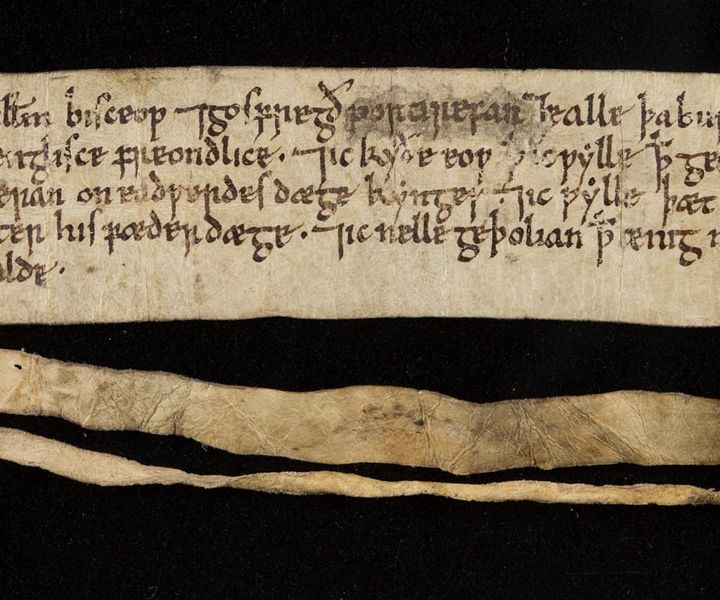 bisceop ⁊ gosfregð portirefan ⁊ ealle þa bur
englisce freondlice · ⁊ ic kyðe eoƿ ꝥ ic ƿylle ꝥ ge
eran on eadƿerdes dæge kynges · ⁊ ic ƿylle þæt
ter his fæder dæge · ⁊ ic nelle geþolian ꝥ ænig
alde ·